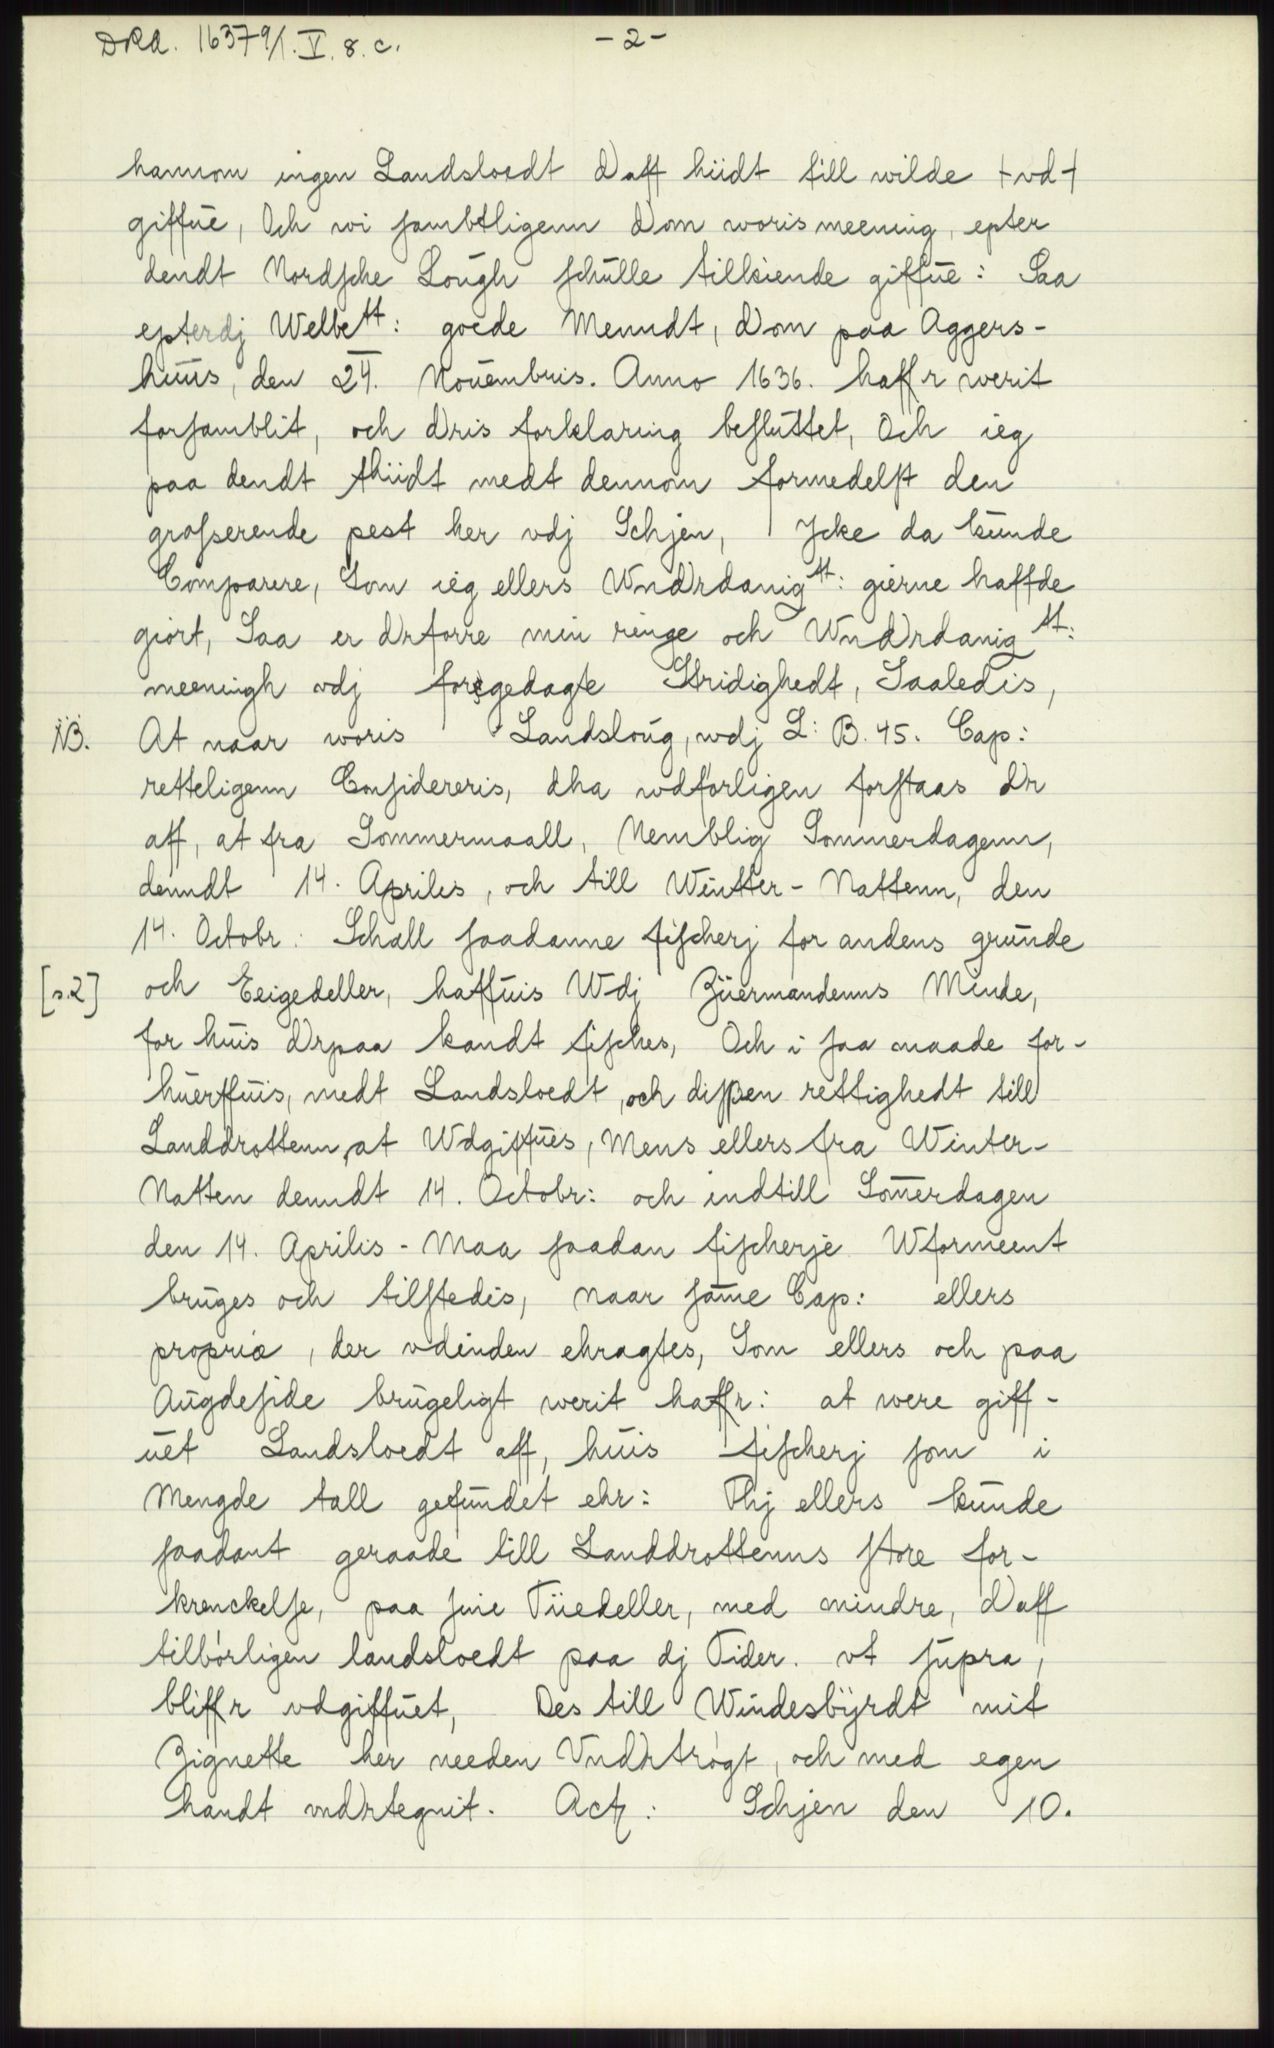 DRA. 16379/1. V. 8. c. - 2 -
hannom ingen Landsloedt Daff hiidt till wilde +vd+
giffue, Och wi sambtligenn Dom woris meening, epter
dendt Nordsche Lough schulle tilkiende giffue: Saa
epterdj Welbe tt: goede Menndt, Dom paa Aggers-
huus, den 24. Nouembris. Anno 1636. haffr werit
forsamblit, och Dris forklaring besluttet, Och ieg
paa dendt thiidt medt dennom formedelst den
grasserende pest her vdj Schjen, Jcke da kunde
Comparere, Som ieg ellers VnDrdanig tt: gierne haffde
giort, Saa er Drforre min ringe och VnDrdanig tt:
meeningh vdj foregedagte Stridighedt, Saaledis,
NB. At naar woris Landsloug, wdj L: B. 45. Cap:
retteligenn Considereris, dha wdforligen forstaas Dr
aff, at fra Sommermaall, Nemblig Sommerdagenn,
denndt 14. Aprilis, och till Wintter-Nattenn, den
14. Octobr: Schall saadanne fischerj for andens grunde
[s.2] och Eeigedeller, haffuis Wdj Büermandenns Minde,
for huis Drpaa kandt fisches, Och i saa maade for-
huerffuis, medt Landsloedt, och dissen rettighedt till
Landdrottenn, at Wdgiffues, Mens ellers fra Winter-
Natten denndt 14. Octobr: och indtill Somerdagen
den 14. Aprilis - Maa saadan fischerje Wformeent
bruges och tilstedis, naar same Cap: ellers
propriæ, der vdinden ehragtes, Som ellers och paa
Augdeside brugeligt werit haffr: at were giff-
uet Landsloedt aff, huis fischerj som i
Mengde tall gefundet ehr: Thj ellers kunde
saadant geraade till Landdrottenns store for-
krenckelse, paa sine Tiiedeller, med mindre, Daff
tilbørligen landsloedt paa dj Tider. vt supra,
bliffr vdgiffuet, Des till Windesbÿrdt mit
Zignette her needen VnDrtrøgt, och med egen
handt vnDrtegnit. Act: Schjen den 10.